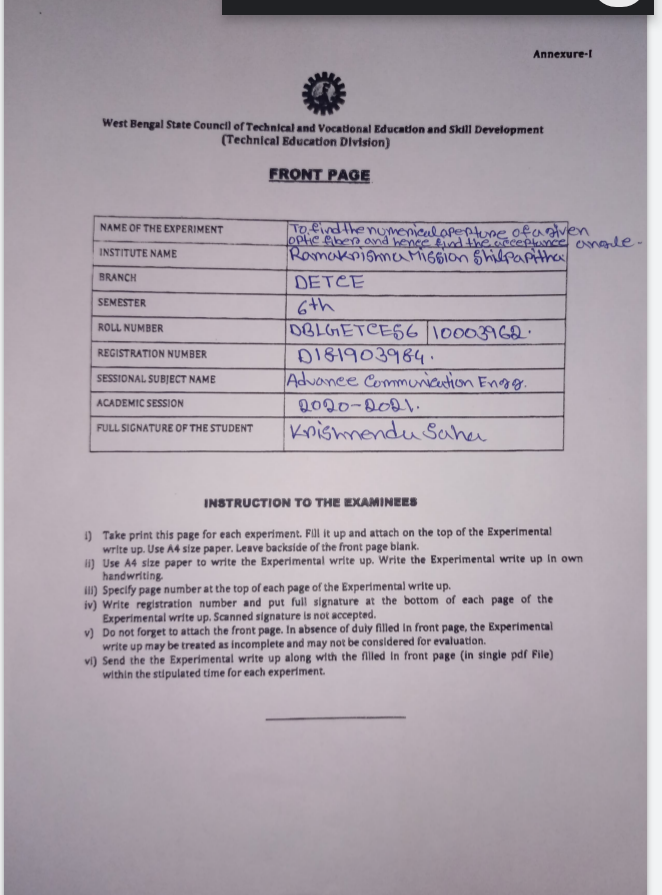 Annexure-I
West Bengal State Council of Technical and Vocational Education and Skill Development
(Technical Education Division)
FRONT PAGE
NAME OF THE EXPERIMENT To find the numerical aperture of a given
optic fibers and hence find the acceptance angle-
INSTITUTE NAME Ramakrishna Mission Shilpapitha
BRANCH DETCE
SEMESTER 6th
ROLL NUMBER DBLGETCES6 10003962.
REGISTRATION NUMBER D181903984.
SESSIONAL SUBJECT NAME Advance Communication Engg.
ACADEMIC SESSION 2020-2021.
FULL SIGNATURE OF THE STUDENT Krishnendu Saha
INSTRUCTION TO THE EXAMINEES
i) Take print this page for each experiment. Fill it up and attach on the top of the Experimental
write up. Use A4 size paper. Leave backside of the front page blank.
ii) Use A4 size paper to write the Experimental write up. Write the Experimental write up in own
handwriting.
iii) Specify page number at the top of each page of the Experimental write up.
iv) Write registration number and put full signature at the bottom of each page of the
Experimental write up. Scanned signature is not accepted.
v) Do not forget to attach the front page. In absence of duly filled in front page, the Experimental
write up may be treated as incomplete and may not be considered for evaluation.
vi) Send the the Experimental write up along with the filled in front page (in single pdf File)
within the stipulated time for each experiment.